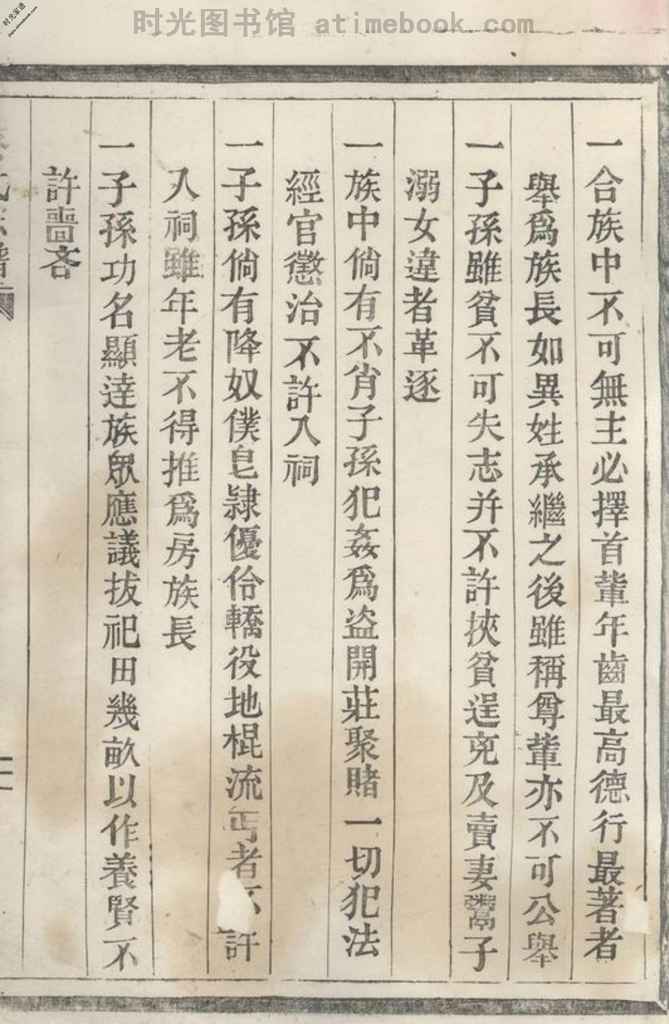 时光图书馆 atimebook.com
一合族中不可無主必擇首軰年齒最高德行最著者
舉爲族長如異姓承繼之後雖稱尊軰亦不可公舉
一子孫雖貧不可失志并不許挾貧逞兇及賣妻鬻子
溺女違者革逐
一族中倘有不肖子孫犯姦爲盗開莊聚賭一切犯法
經官懲治不許入祠
一子孫倘有降奴僕皂隷優伶轎役地棍流丐者不許
入祠雖年老不得推爲房族長
一子孫功名顯逹族眾應議拔祀田幾畝以作養賢不
許嗇吝